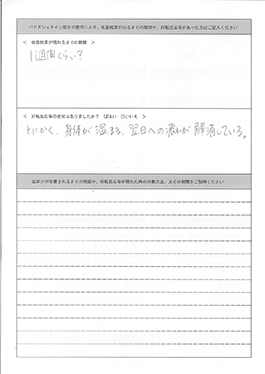 バドガシュタイン鉱石の使用により、改善結果が出るまでの期間や、好転反応等があった方はご記入ください
< 改善結果が現れるまでの期間 >
1週間くらい?
< 好転反応等の症状はありましたか? はい いいえ >
とにかく、身体が温まる、翌日への疲れが解消している。
症状が改善されるまでの経過や、好転反応等が現れた時の対処方法、又その期間をご説明ください